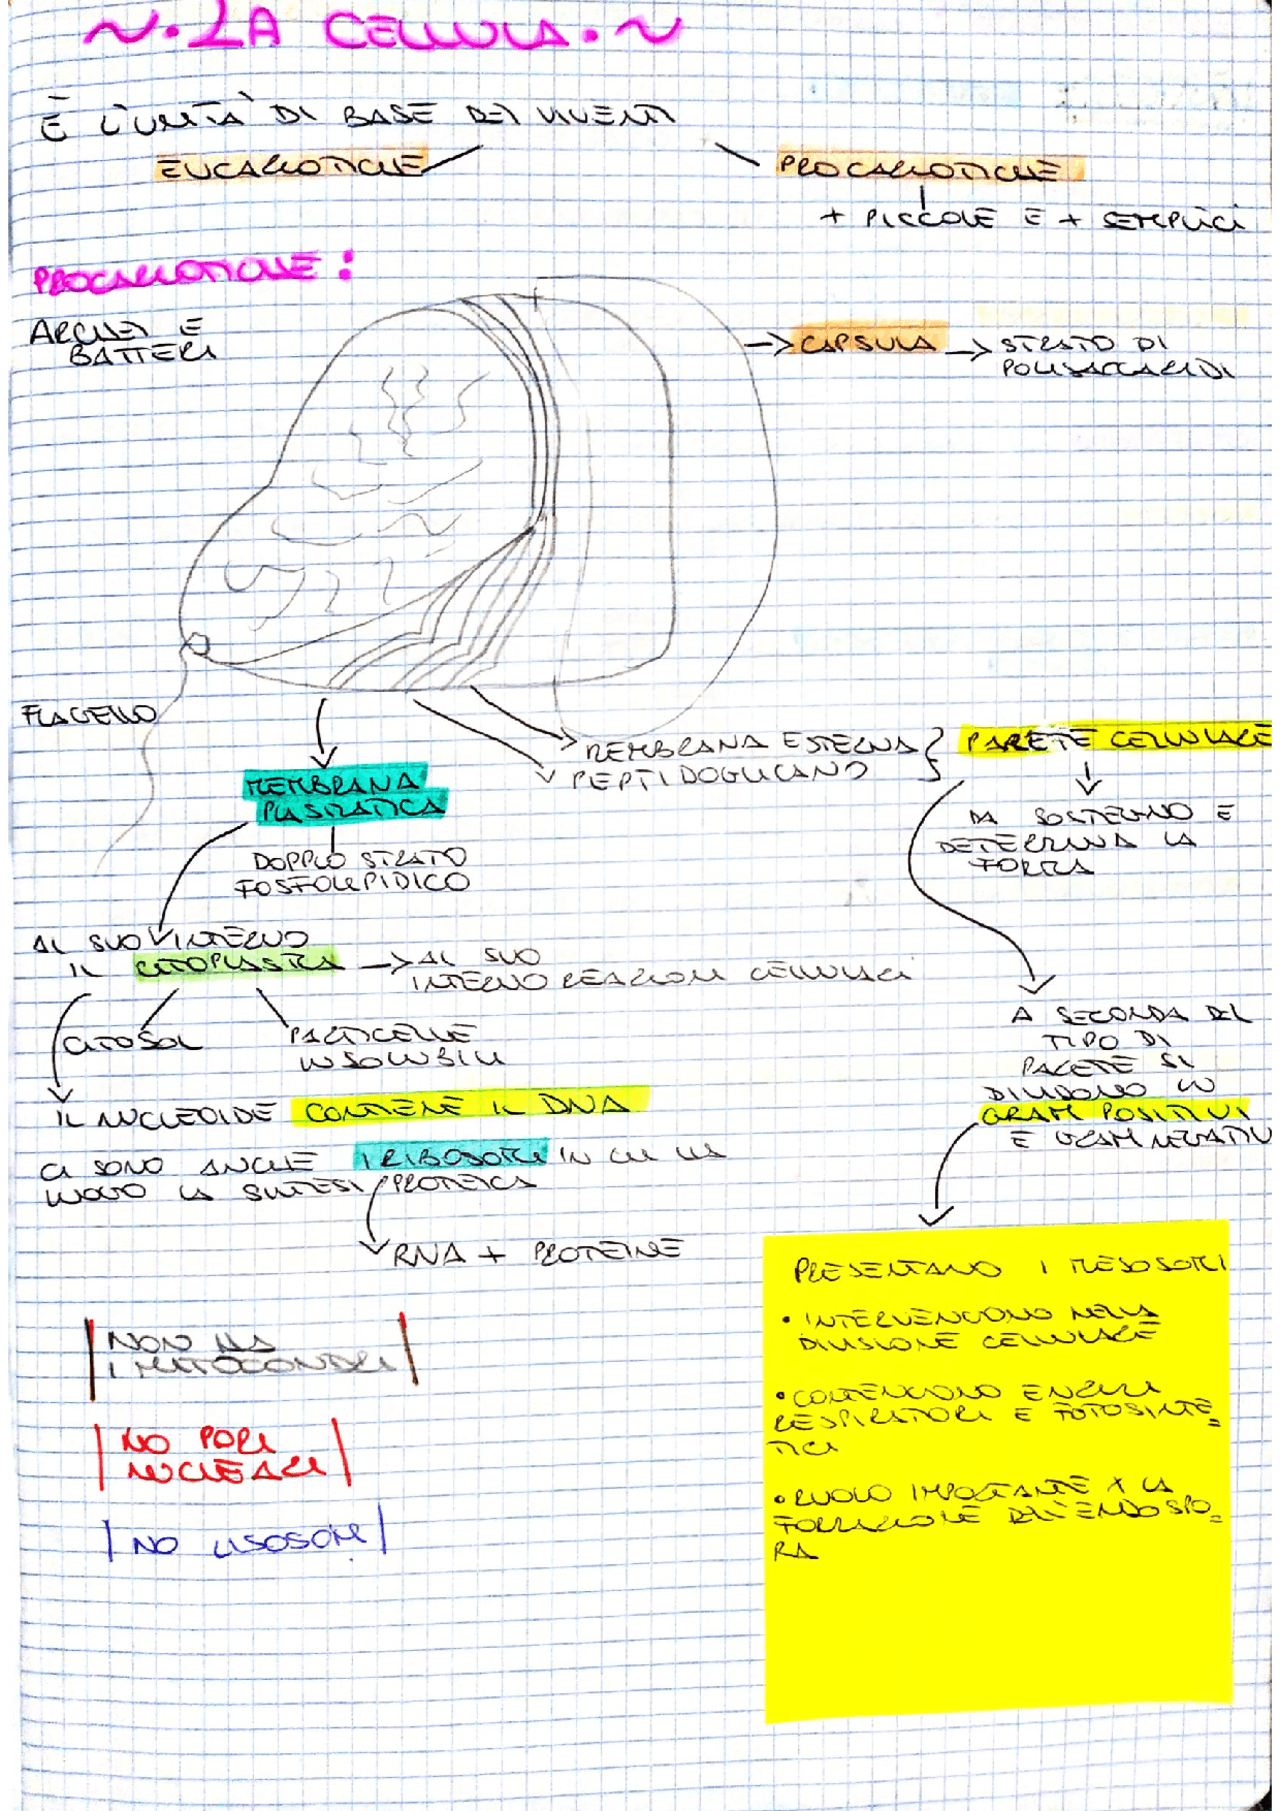 ~.LA CELLULA.~
È L'UNITÀ DI BASE DEI VIVENTI
EUCARIOTICHE
PROCARIOTICHE
+ PICCOLE E + SEMPLICI
PROCARIOTICHE:
ARCHEI E
BATTERI
→ CAPSULA → STRATO DI
POLISACCARIDI
FLAGELLO
MEMBRANA ESTERNA } PARETE CELLULARE
PEPTIDOGLICANO
MEMBRANA
PLASMATICA
DA SOSTEGNO E
DETERMINA LA
FORMA
DOPPIO STRATO
FOSFOLIPIDICO
AL SUO INTERNO
IL CITOPLASMA → AL SUO
INTERNO REAZIONI CELLULARI
CITOSOL
PARTICELLE
INSOLUBILI
A SECONDA DEL
TIPO DI
PARETE SI
DIVIDONO IN
GRAM POSITIVI
E GRAM NEGATIVI
IL NUCLEOIDE CONTIENE IL DNA
CI SONO ANCHE I RIBOSOMI IN CUI HA
LUOGO LA SINTESI PROTEICA
RNA + PROTEINE
PRESENTANO I MESOSOMI
• INTERVENGONO NELLA
DIVISIONE CELLULARE
• CONTENGONO ENZIMI
RESPIRATORI E FOTOSINTE=
TICI
• RUOLO IMPORTANTE X LA
FORMAZIONE DELL'ENDOSPO=
RA
NON HA
I MITOCONDRI
NO PORI
NUCLEARI
NO LISOSOMI